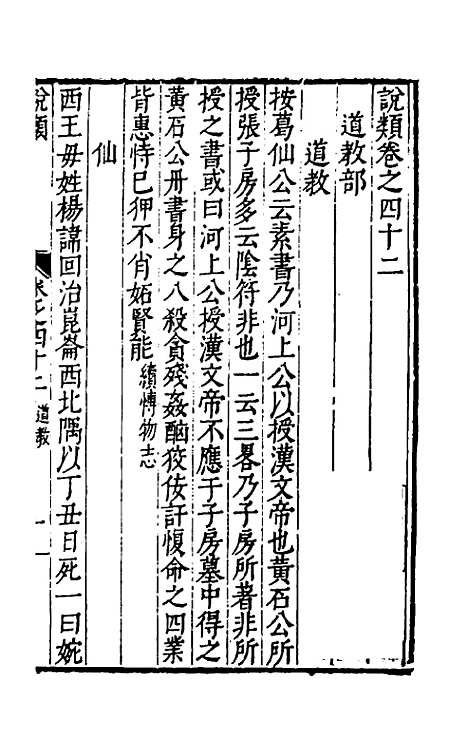 說類卷之四十二
道教部
道教
按葛仙公云素書乃河上公以授漢文帝也黃石公所
授張子房多云陰符非也一云三畧乃子房所著非所
授之書或曰河上公授漢文帝不應于子房墓中得之
黃石公冊書身之八殺貪殘姦酗狡佞訐愎命之四業
皆惠恃已狎不肖妬賢能續博物志
仙
西王毋姓楊諱回治崑崙西北隅以丁丑日死一曰婉
說類
卷之四十二
道教
一